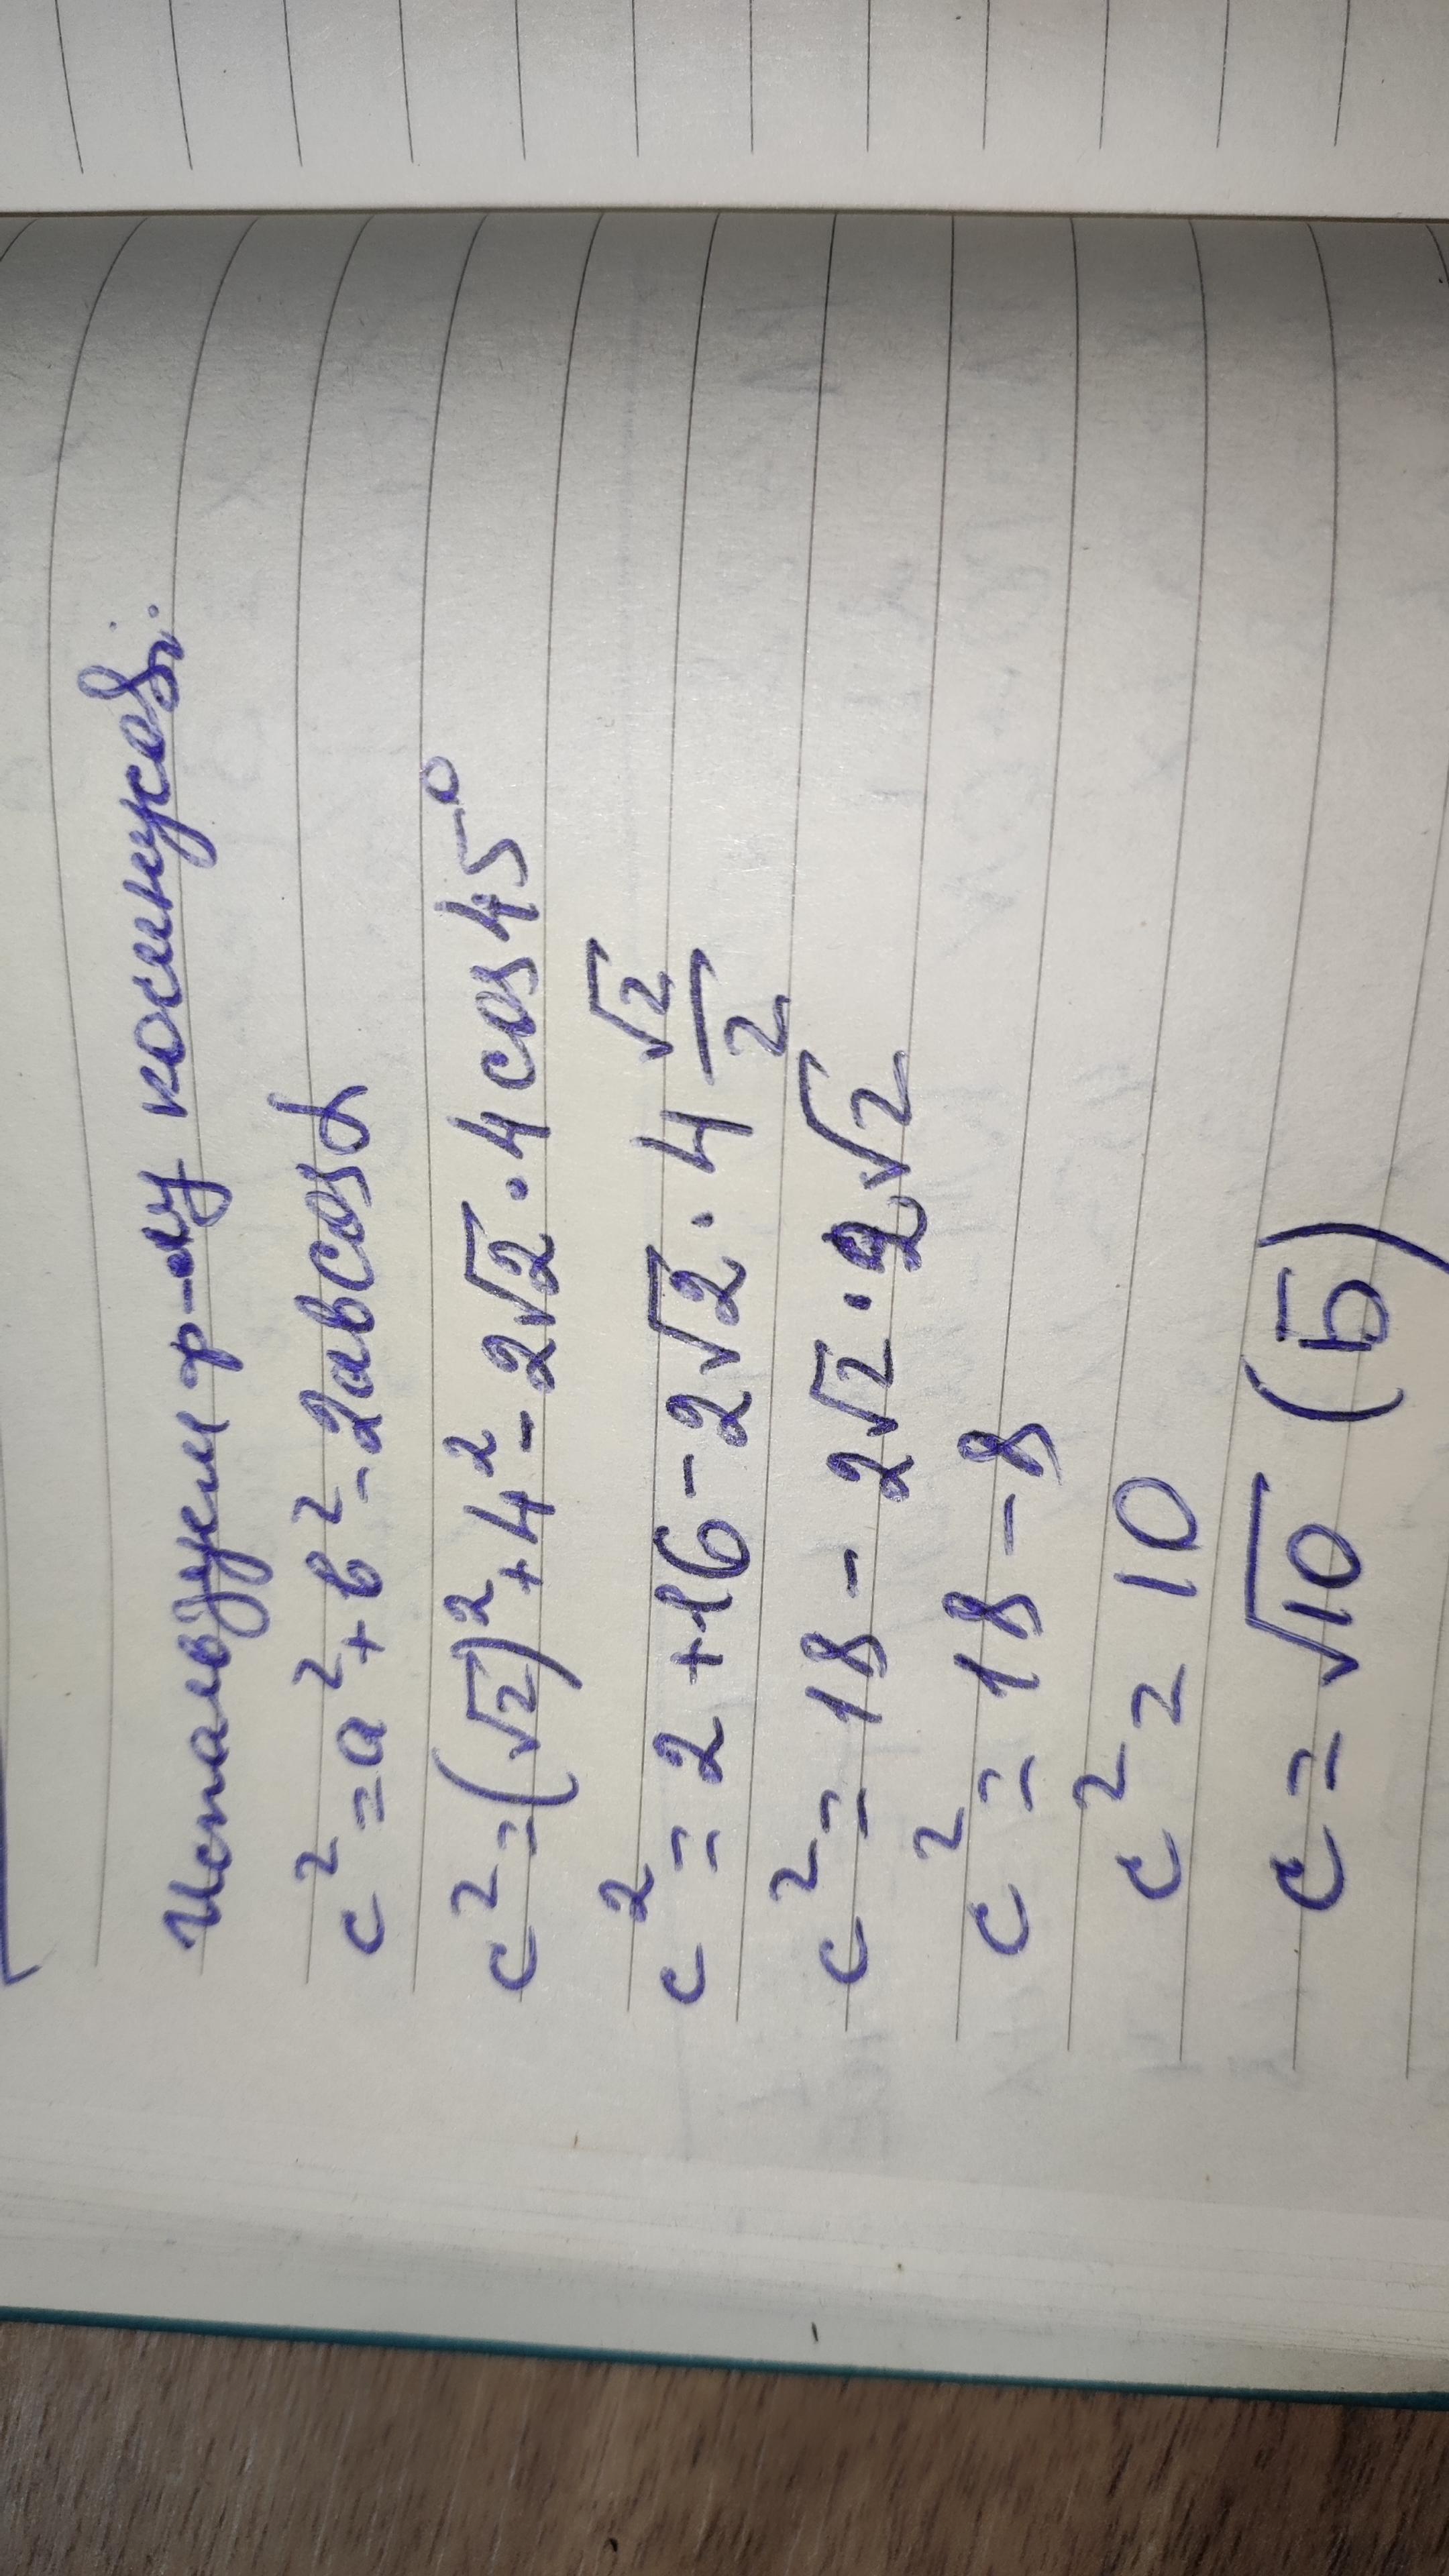 Используем ф-му косинусов:
c² = a² + b² - 2abcosα
c² = (√2)² + 4² - 2√2 · 4 cos 45°
c² = 2 + 16 - 2√2 · 4 √2/2
c² = 18 - 2√2 · 2√2
c² = 18 - 8
c² = 10
c = √10 (Б)